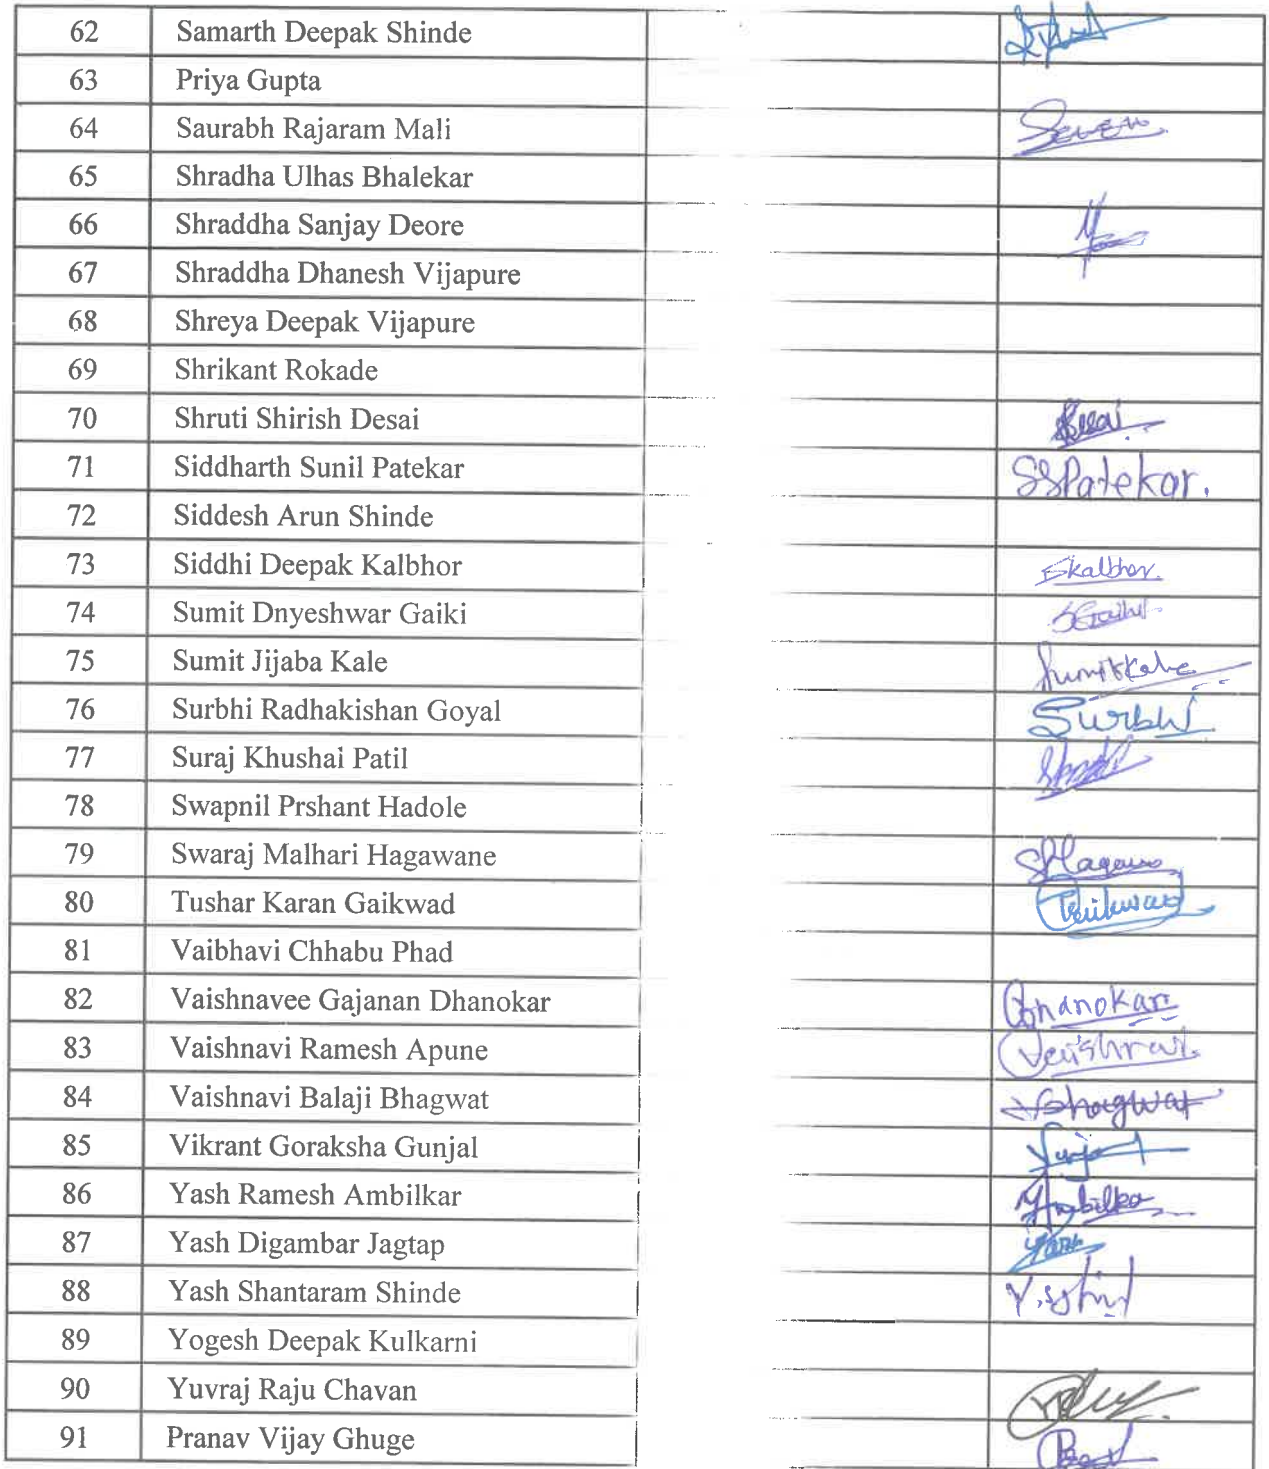 62 Samarth Deepak Shinde
63 Priya Gupta
64 Saurabh Rajaram Mali
65 Shradha Ulhas Bhalekar
66 Shraddha Sanjay Deore
67 Shraddha Dhanesh Vijapure
68 Shreya Deepak Vijapure
69 Shrikant Rokade
70 Shruti Shirish Desai
71 Siddharth Sunil Patekar SSPatekar.
72 Siddesh Arun Shinde
73 Siddhi Deepak Kalbhor Skalbhor.
74 Sumit Dnyeshwar Gaiki
75 Sumit Jijaba Kale Sumitkale
76 Surbhi Radhakishan Goyal Surbhi
77 Suraj Khushai Patil
78 Swapnil Prshant Hadole
79 Swaraj Malhari Hagawane
80 Tushar Karan Gaikwad
81 Vaibhavi Chhabu Phad
82 Vaishnavee Gajanan Dhanokar Dhanokar
83 Vaishnavi Ramesh Apune
84 Vaishnavi Balaji Bhagwat VBhagwat
85 Vikrant Goraksha Gunjal
86 Yash Ramesh Ambilkar
87 Yash Digambar Jagtap
88 Yash Shantaram Shinde
89 Yogesh Deepak Kulkarni
90 Yuvraj Raju Chavan
91 Pranav Vijay Ghuge